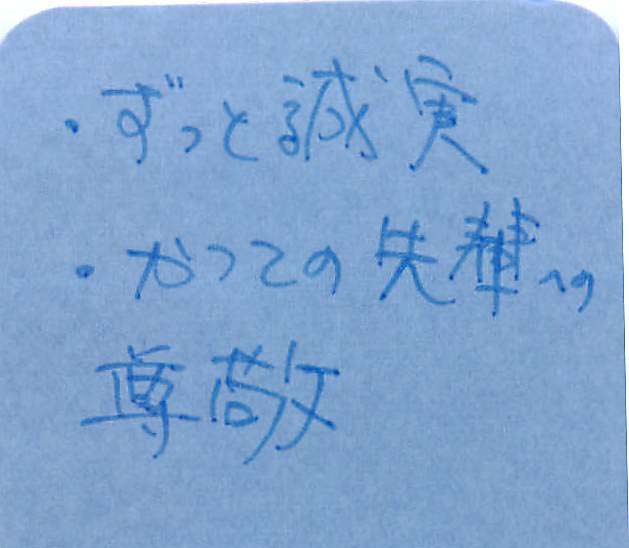 ・ずっと誠実
・かつての先輩への
尊敬